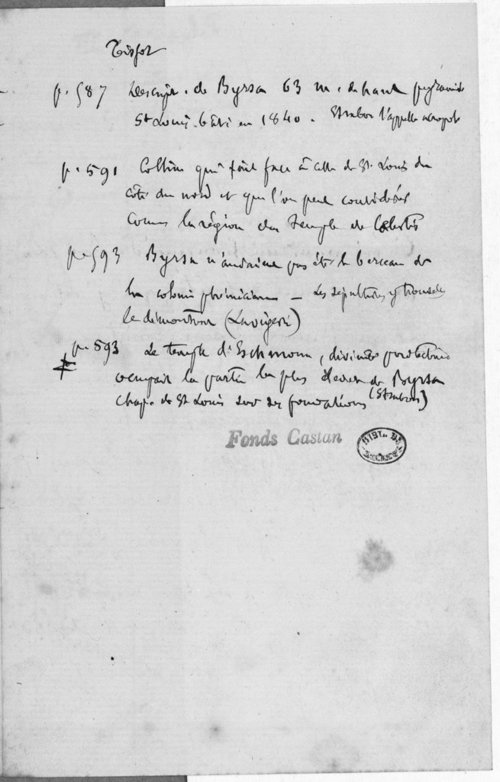 Tissot
p. 587 Descrip. de Byrsa 63 m. de haut pyramide
St Louis bâti en 1840. Strabon l'appelle acropole
p. 591 Colline qui fait face à celle de St. Louis du
côté du nord et que l'on peut considérer
comme la région du temple de Cælestis
p. 593 Byrsa n'aurait pas été le berceau de
la colonie phénicienne — Les sépultures y trouvées
le démontrent (Lavigerie)
p. 593 Le temple d'Eschmoun, divinité protectrice
occupait la partie la plus élevée de Byrsa
chap. de St Louis sur ses fondations (Strabon)
Fonds Castan